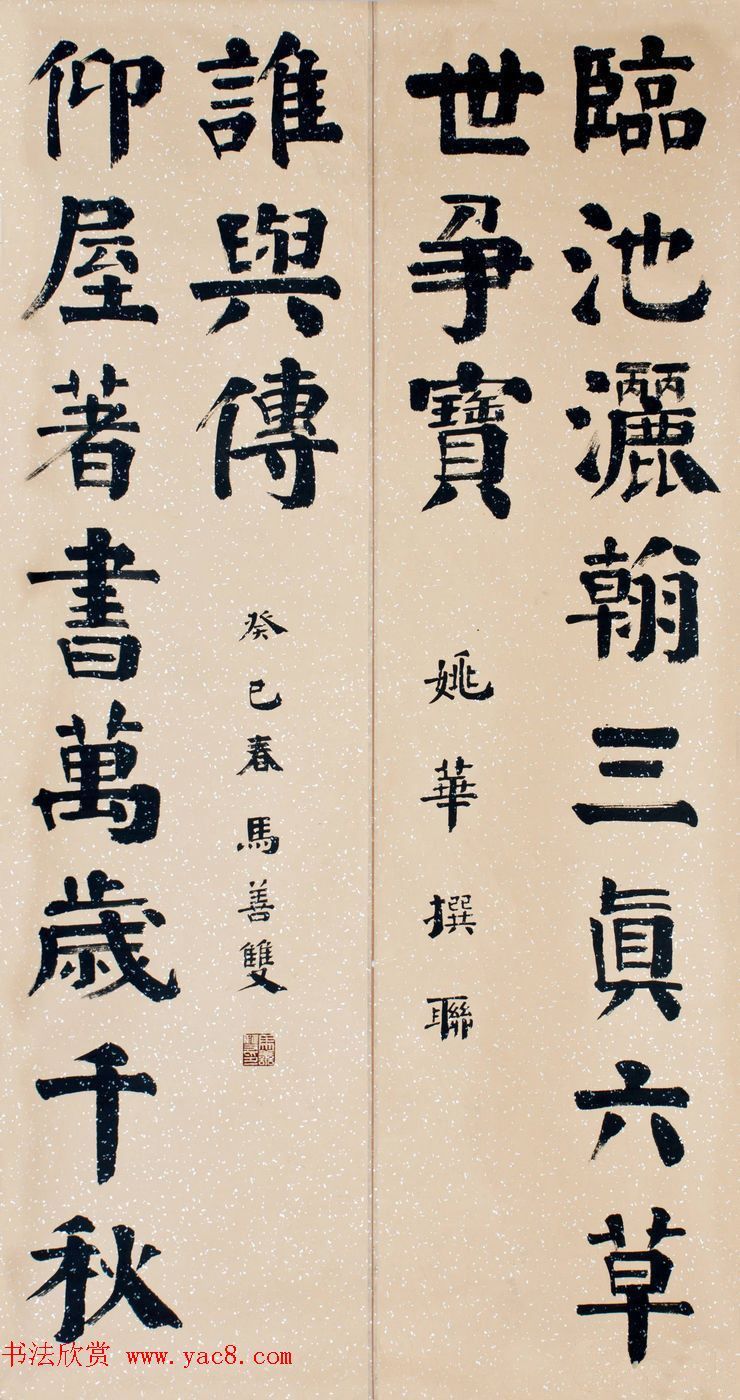 臨池灑翰三眞六草
世争寶
姚華撰聯
仰屋著書萬歲千秋
誰與傳
癸巳春馬善雙
书法欣赏 www.yac8.com